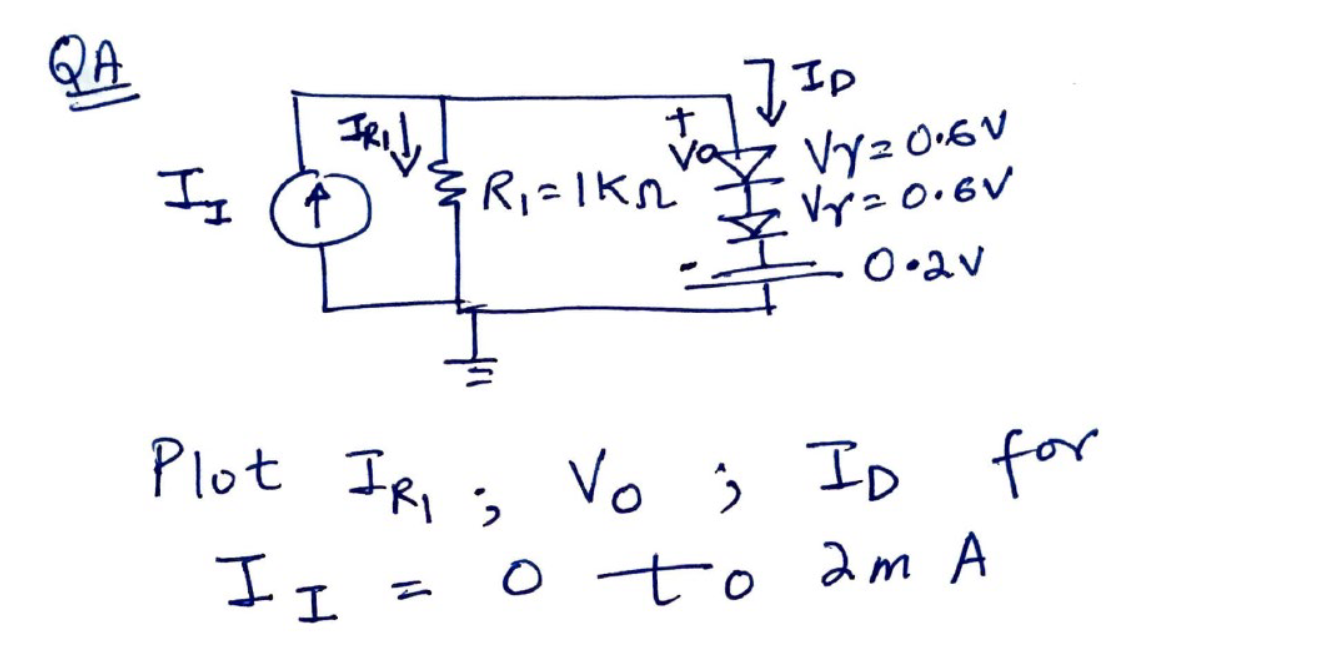 QA
I_D
I_R1
+
Vo
Vγ = 0.6V
I_I
R₁ = 1KΩ
Vγ = 0.6V
-
0.2V
Plot I_R1 ; V_O ; I_D for
I_I = 0 to 2mA